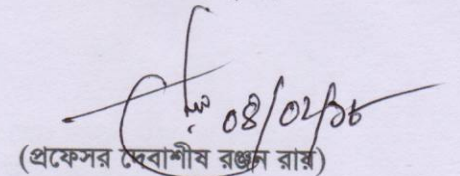 ০৪/০২/১৮
(প্রফেসর দেবাশীষ রঞ্জন রায়)